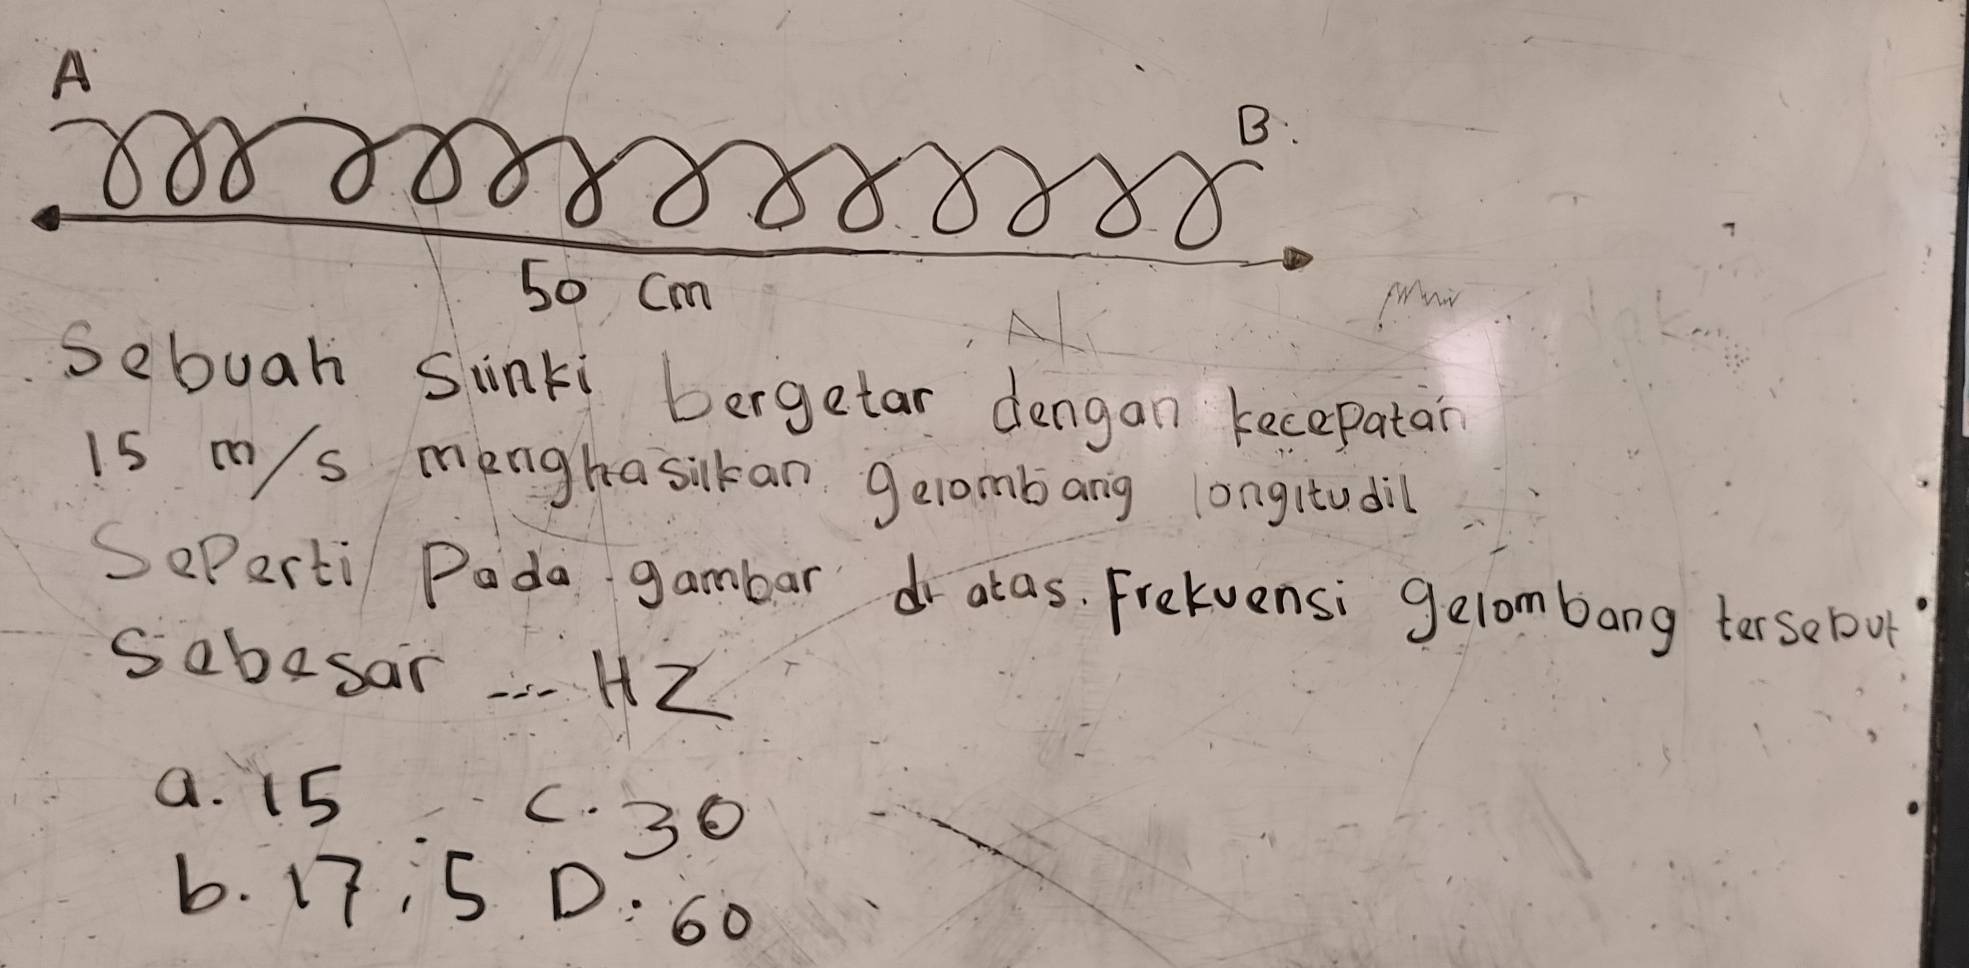 A
B.
50 cm
Sebuah Slinki bergetar dengan kecepatan
15 m/s menghasilkan gelombang longitudil
Seperti Pada gambar di atas. Frekuensi gelombang tersebut
Sebesar .... HZ
a. 15 c. 30
b. 17,5 D. 60